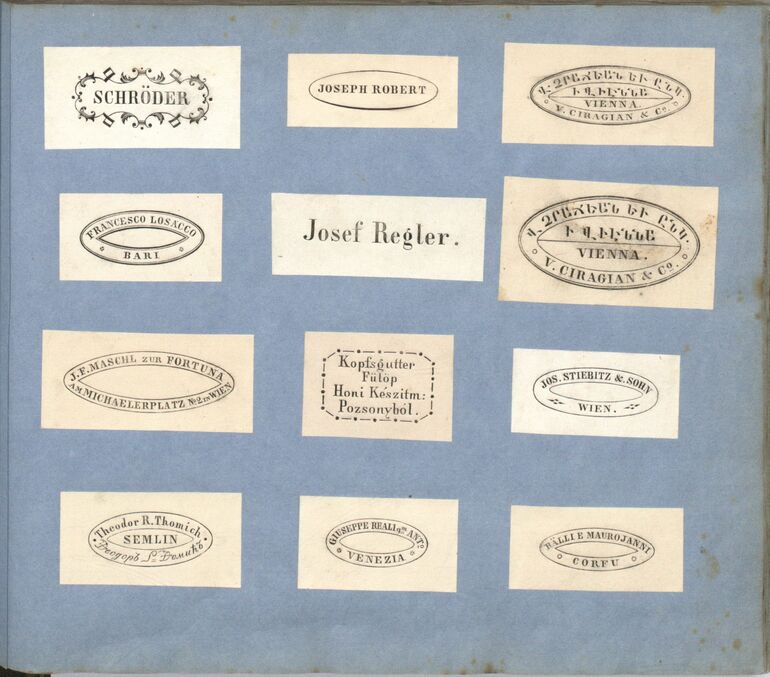 SCHRÖDER
JOSEPH ROBERT
Վ. ՉՐԱՃԵԱՆ ԵՒ ԸՆԿ.
Ի ՎԻԷՆՆԱ
VIENNA.
V. CIRAGIAN & Co.
FRANCESCO LOSACCO
BARI
Josef Regler.
Վ. ՉՐԱՃԵԱՆ ԵՒ ԸՆԿ.
Ի ՎԻԷՆՆԱ
VIENNA.
V. CIRAGIAN & Co.
J. F. MASCHL ZUR FORTUNA
AM MICHAELERPLATZ No. 2 IN WIEN
Kopfsgutter
Fülöp
Honi Készitm:
Pozsonyból.
JOS. STIEBITZ & SOHN
WIEN.
Theodor R. Thomich
SEMLIN
GIUSEPPE REALI qm ANTo
VENEZIA
RALLI E MAUROJANNI
CORFU